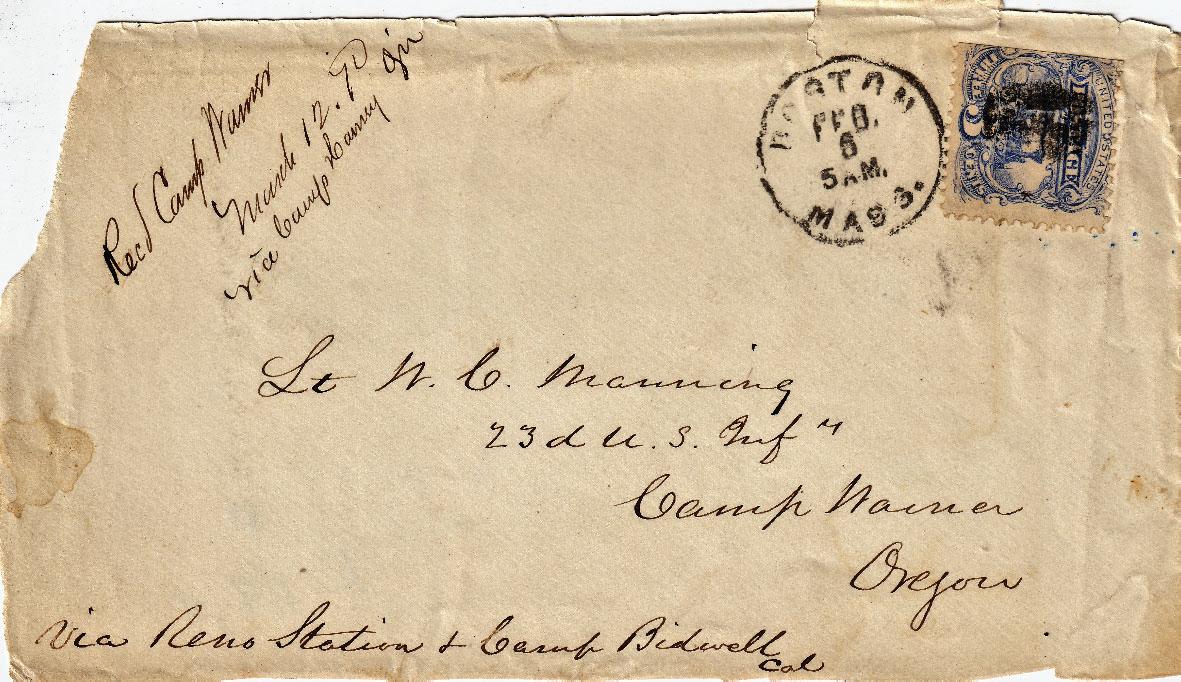 Recd Camp Warner
March 12. 70
via Camp Harney
BOSTON
FEB.
6
5 AM.
MASS.
UNITED STATES
Lt W. C. Manning
23d U. S. Infy
Camp Warner
Oregon
Via Reno Station & Camp Bidwell
Cal